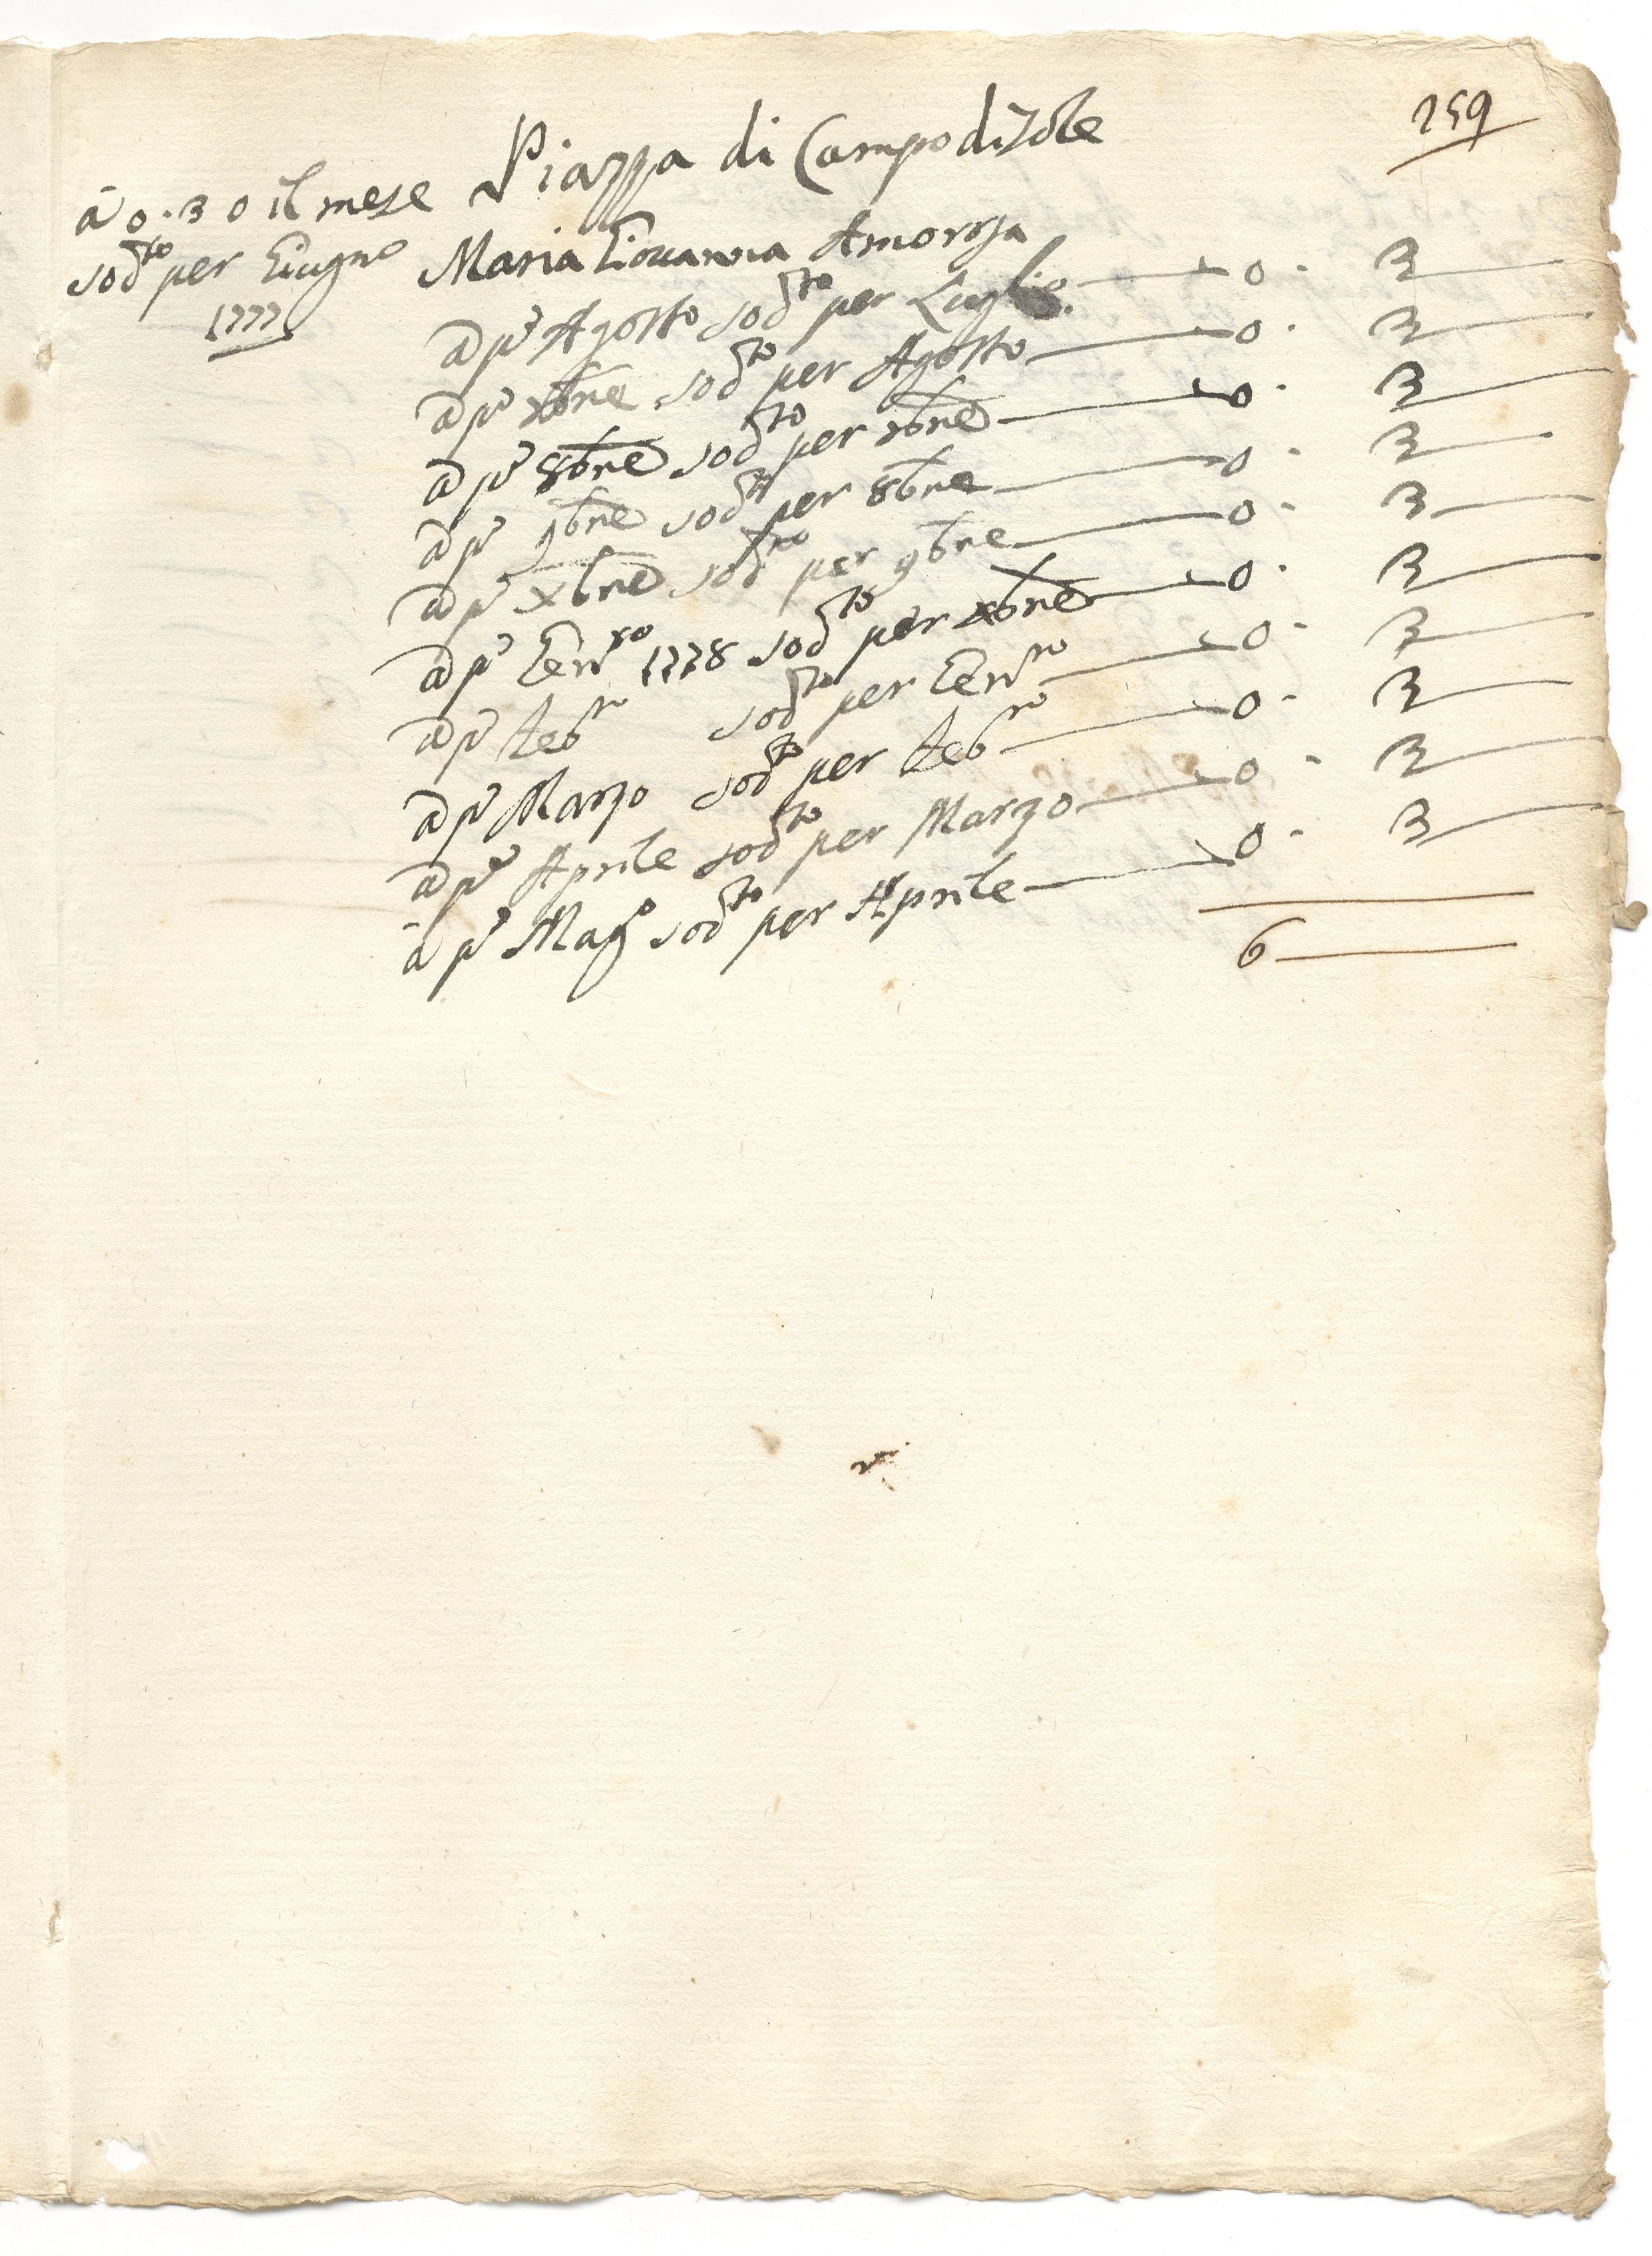 259
Piazza di Campo di Sole
a 0.3 0 il mese
sod.to per Giugno
1777
Maria Giovanna Amorosa
a p.o Agosto sod.to per Luglio 0. 3
a p.o 7bre sod.to per Agosto 0. 3
a p.o 8bre sod.to per 7bre 0. 3
a p.o 9bre sod.to per 8bre 0. 3
a p.o Xbre sod.to per 9bre 0. 3
a p.o Genn.ro 1778 sod.to per Xbre 0. 3
a p.o feb.ro sod.to per Genn.ro 0. 3
a p.o Marzo sod.to per feb.ro 0. 3
a p.o Aprile sod.to per Marzo 0. 3
a p.o Mag.o sod.to per Aprile 0. 3
6